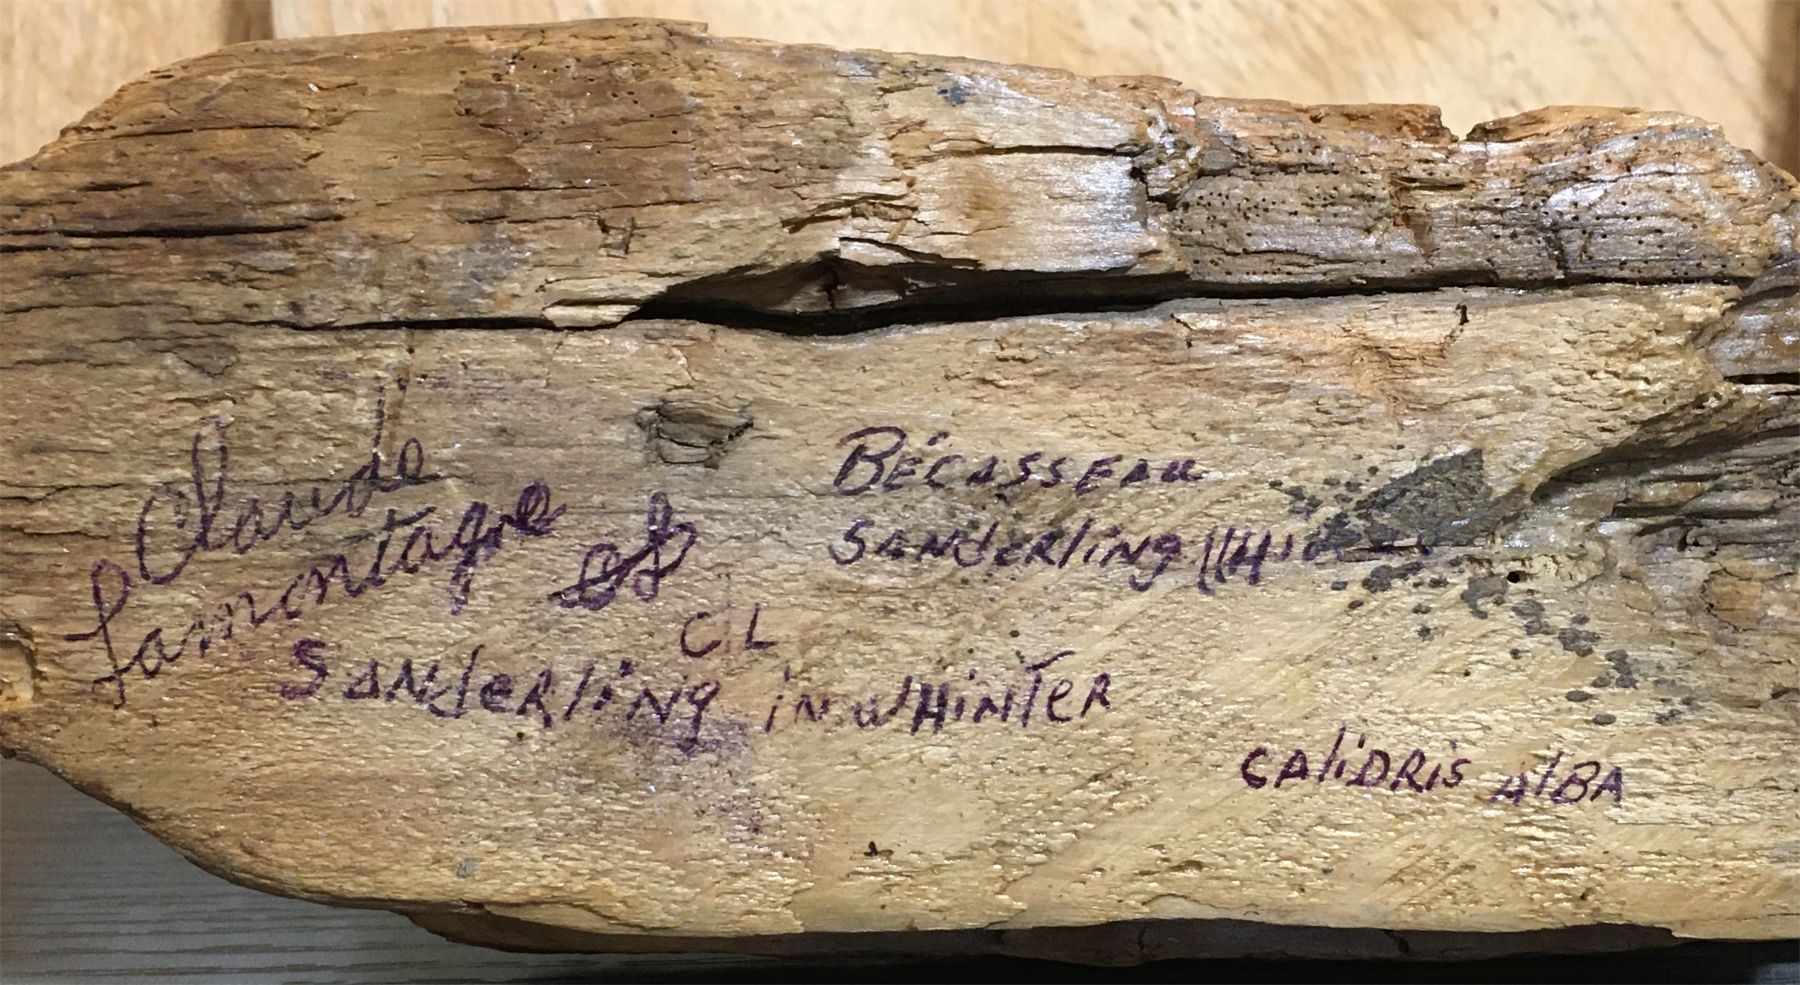 Claude
Lamontagne
CL
Sanderling in WHinTER
BÉCASSEAU
SANderling
CAliDRis AlBA